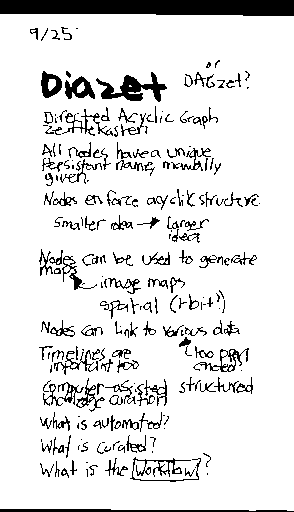 9/25
or
Diazet DAGzet?
Directed Acyclic Graph
Zettlekasten
All nodes have a unique
Persistent name, manually
given.
Nodes enforce acyclic structure
Smaller idea → Larger
idea
Nodes can be used to generate
maps
image maps
spatial (rbit?)
Nodes can link to various data
Timelines are
important too
too open
ended?
computer-assisted structured
knowledge curation
What is automated?
What is curated?
What is the Workflow?